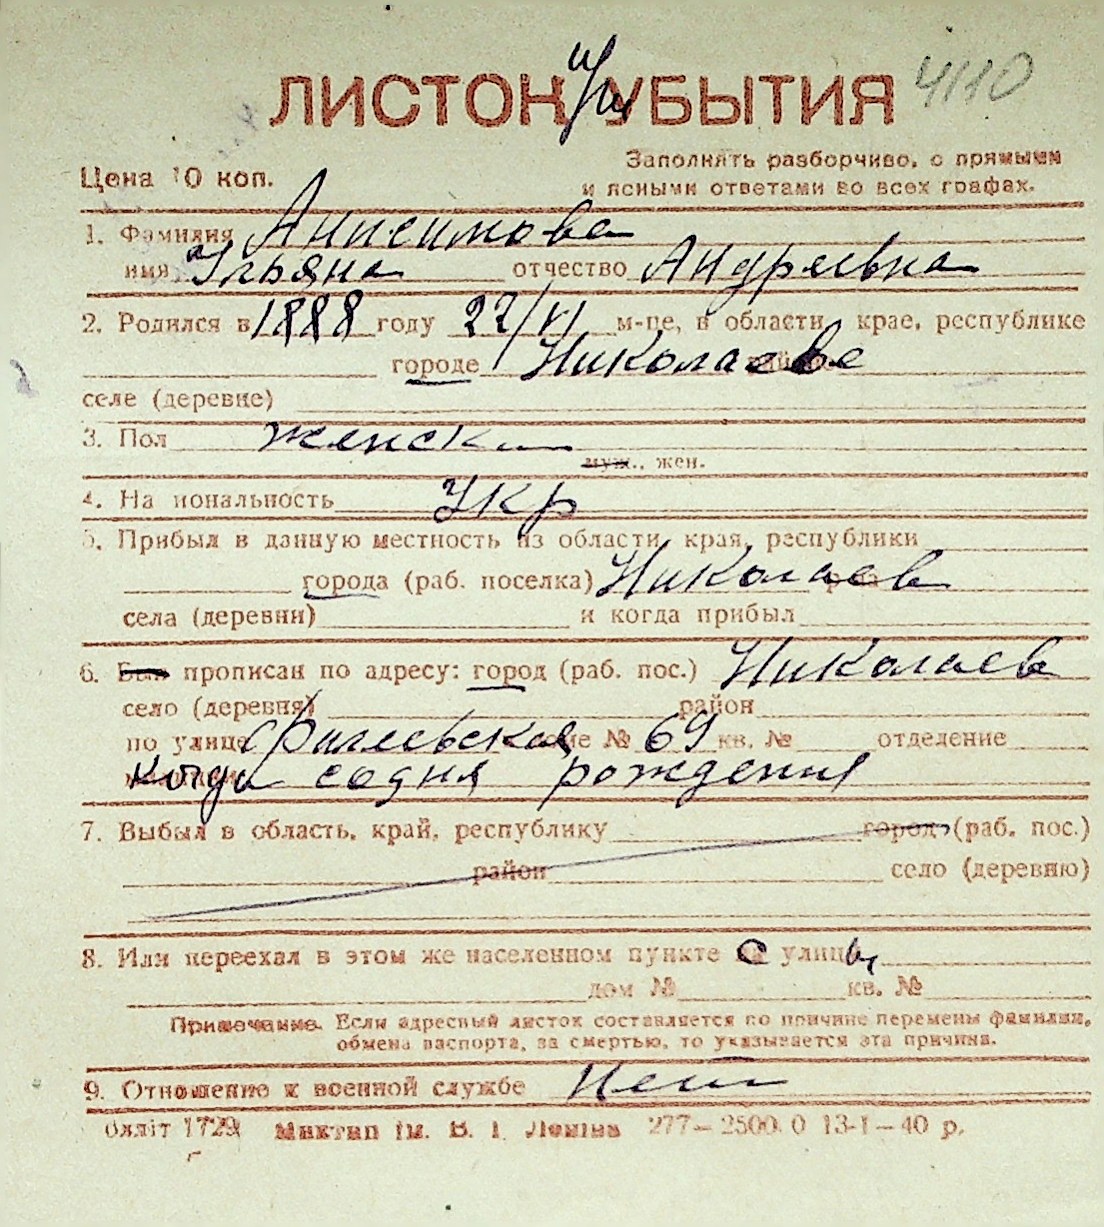 ЛИСТОК УБЫТИЯ 4110
Цена 10 коп.
Заполнять разборчиво, с прямыми
и ясными ответами во всех графах.
1. Фамилия Анисимова
имя Ульяна отчество Андреевна
2. Родился в 1888 году 22/VI м-це, в области, крае, республике
городе Николаеве
селе (деревне)
3. Пол женск
муж., жен.
4. Национальность Укр
5. Прибыл в данную местность из области, края, республики
города (раб. поселка) Николаев
села (деревни) и когда прибыл
6. Был прописан по адресу: город (раб. пос.) Николаев
село (деревня) район
по улице дом № 69 кв. № отделение
когда со дня рождения
7. Выбыл в область, край, республику город (раб. пос.)
район село (деревню)
8. Или переехал в этом же населенном пункте с улицы
дом № кв. №
Примечание. Если адресный листок составляется по причине перемены фамилии,
обмена паспорта, за смертью, то указывается эта причина.
9. Отношение к военной службе Нет
Обллiт 1729 Миктип iм. В. I. Ленiна 277—2500.0 13-I—40 р.